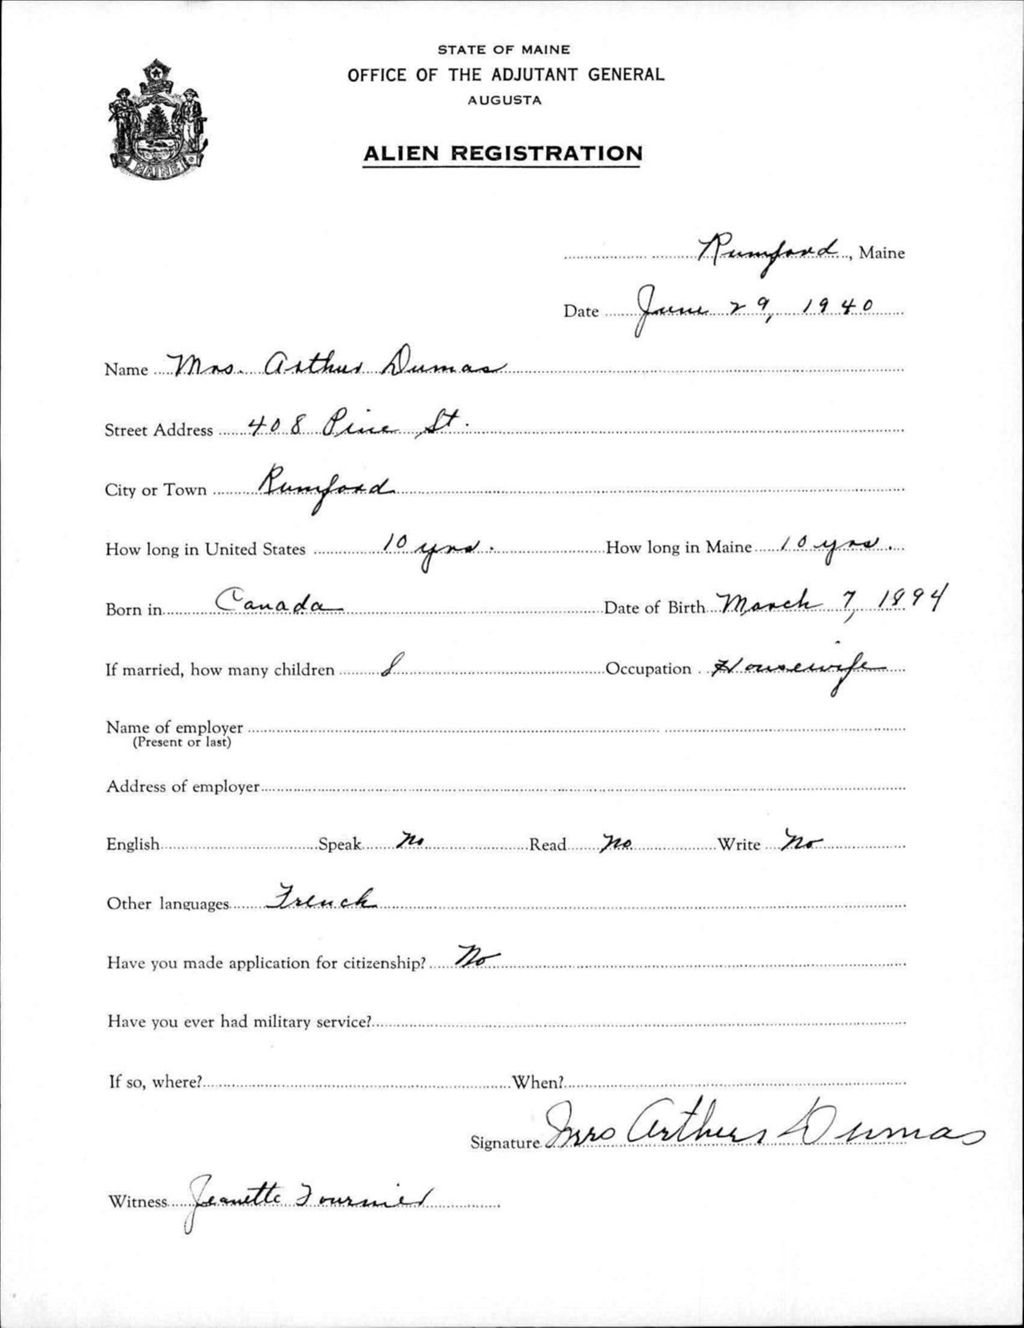 STATE OF MAINE
OFFICE OF THE ADJUTANT GENERAL
AUGUSTA
ALIEN REGISTRATION
MAINE
Rumford, Maine
Date June 29, 1940
Name Mrs. Arthur Dumas
Street Address 408 Pine St.
City or Town Rumford
How long in United States 10 yrs. How long in Maine 10 yrs.
Born in Canada Date of Birth March 7, 1894
If married, how many children 8 Occupation Housewife
Name of employer
(Present or last)
Address of employer
English Speak No Read No Write No
Other languages French
Have you made application for citizenship? No
Have you ever had military service?
If so, where? When?
Signature Mrs Arthur Dumas
Witness Jeanette Fournier